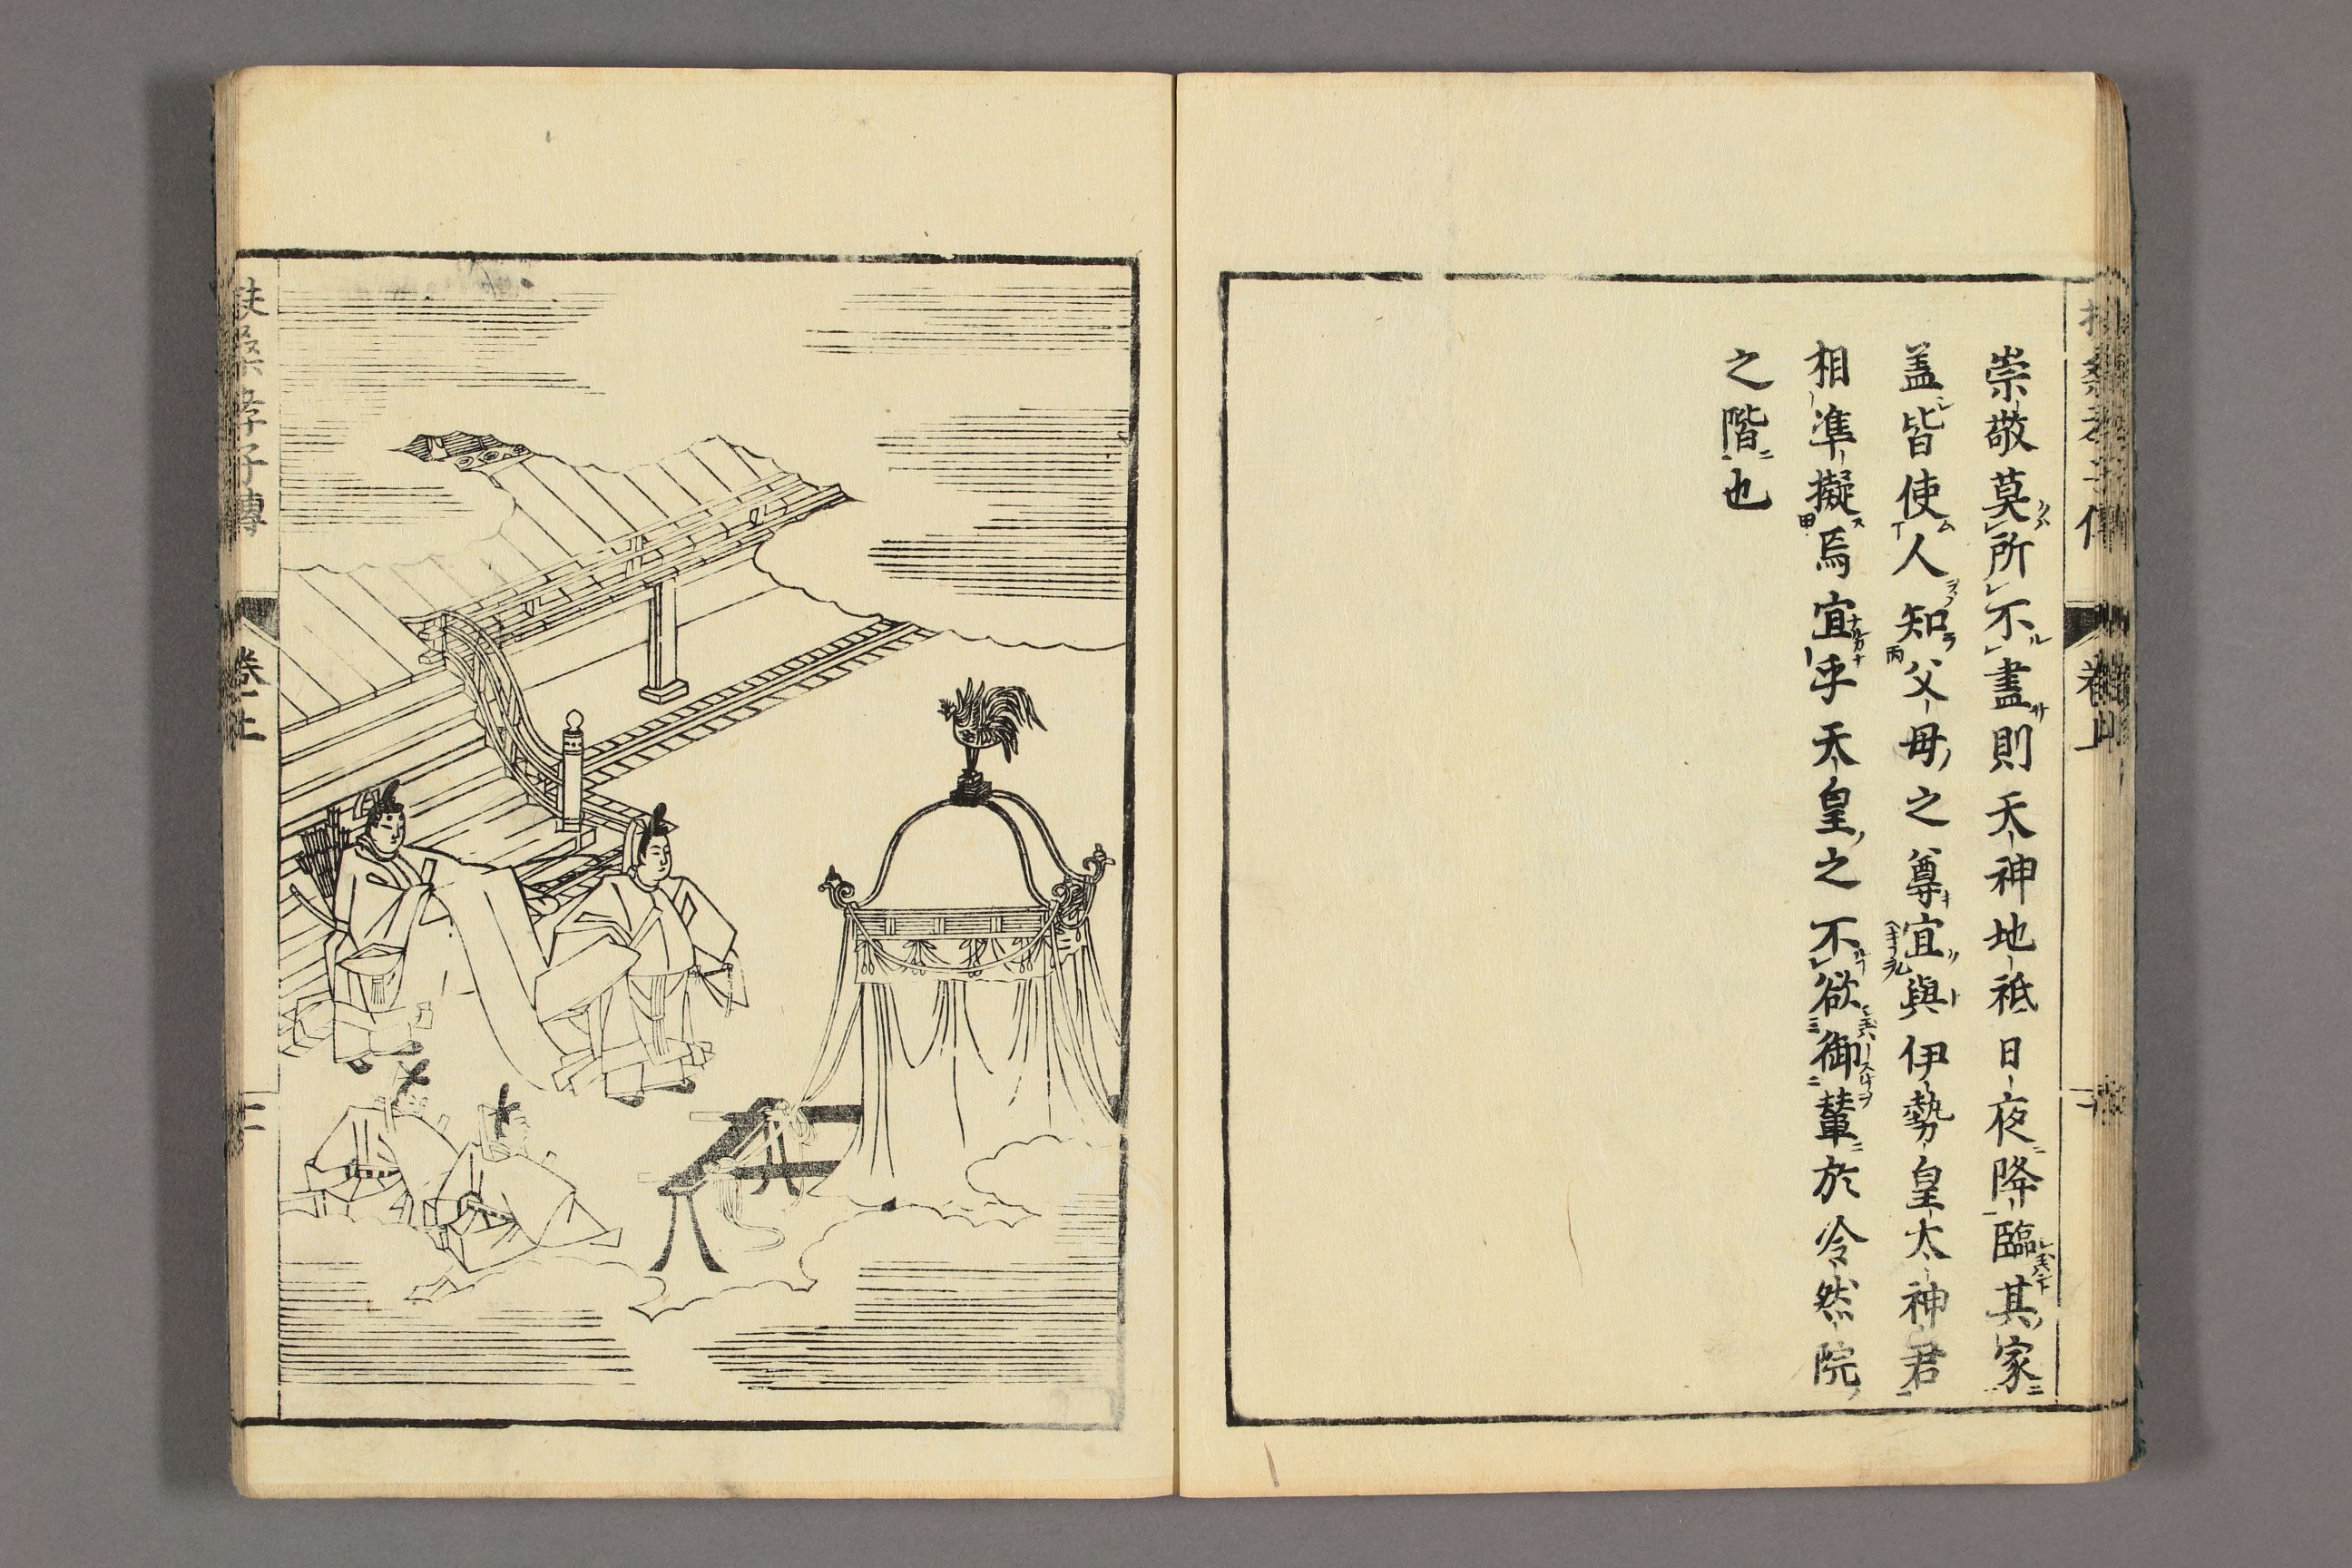 崇敬莫所不盡則天神地祗日夜降臨其家
盖皆使人知父母之尊宜與伊勢皇太神君
相準擬焉宜乎天皇之不欲御輦於冷然院
之階也
扶桑孝子傳 卷上 二